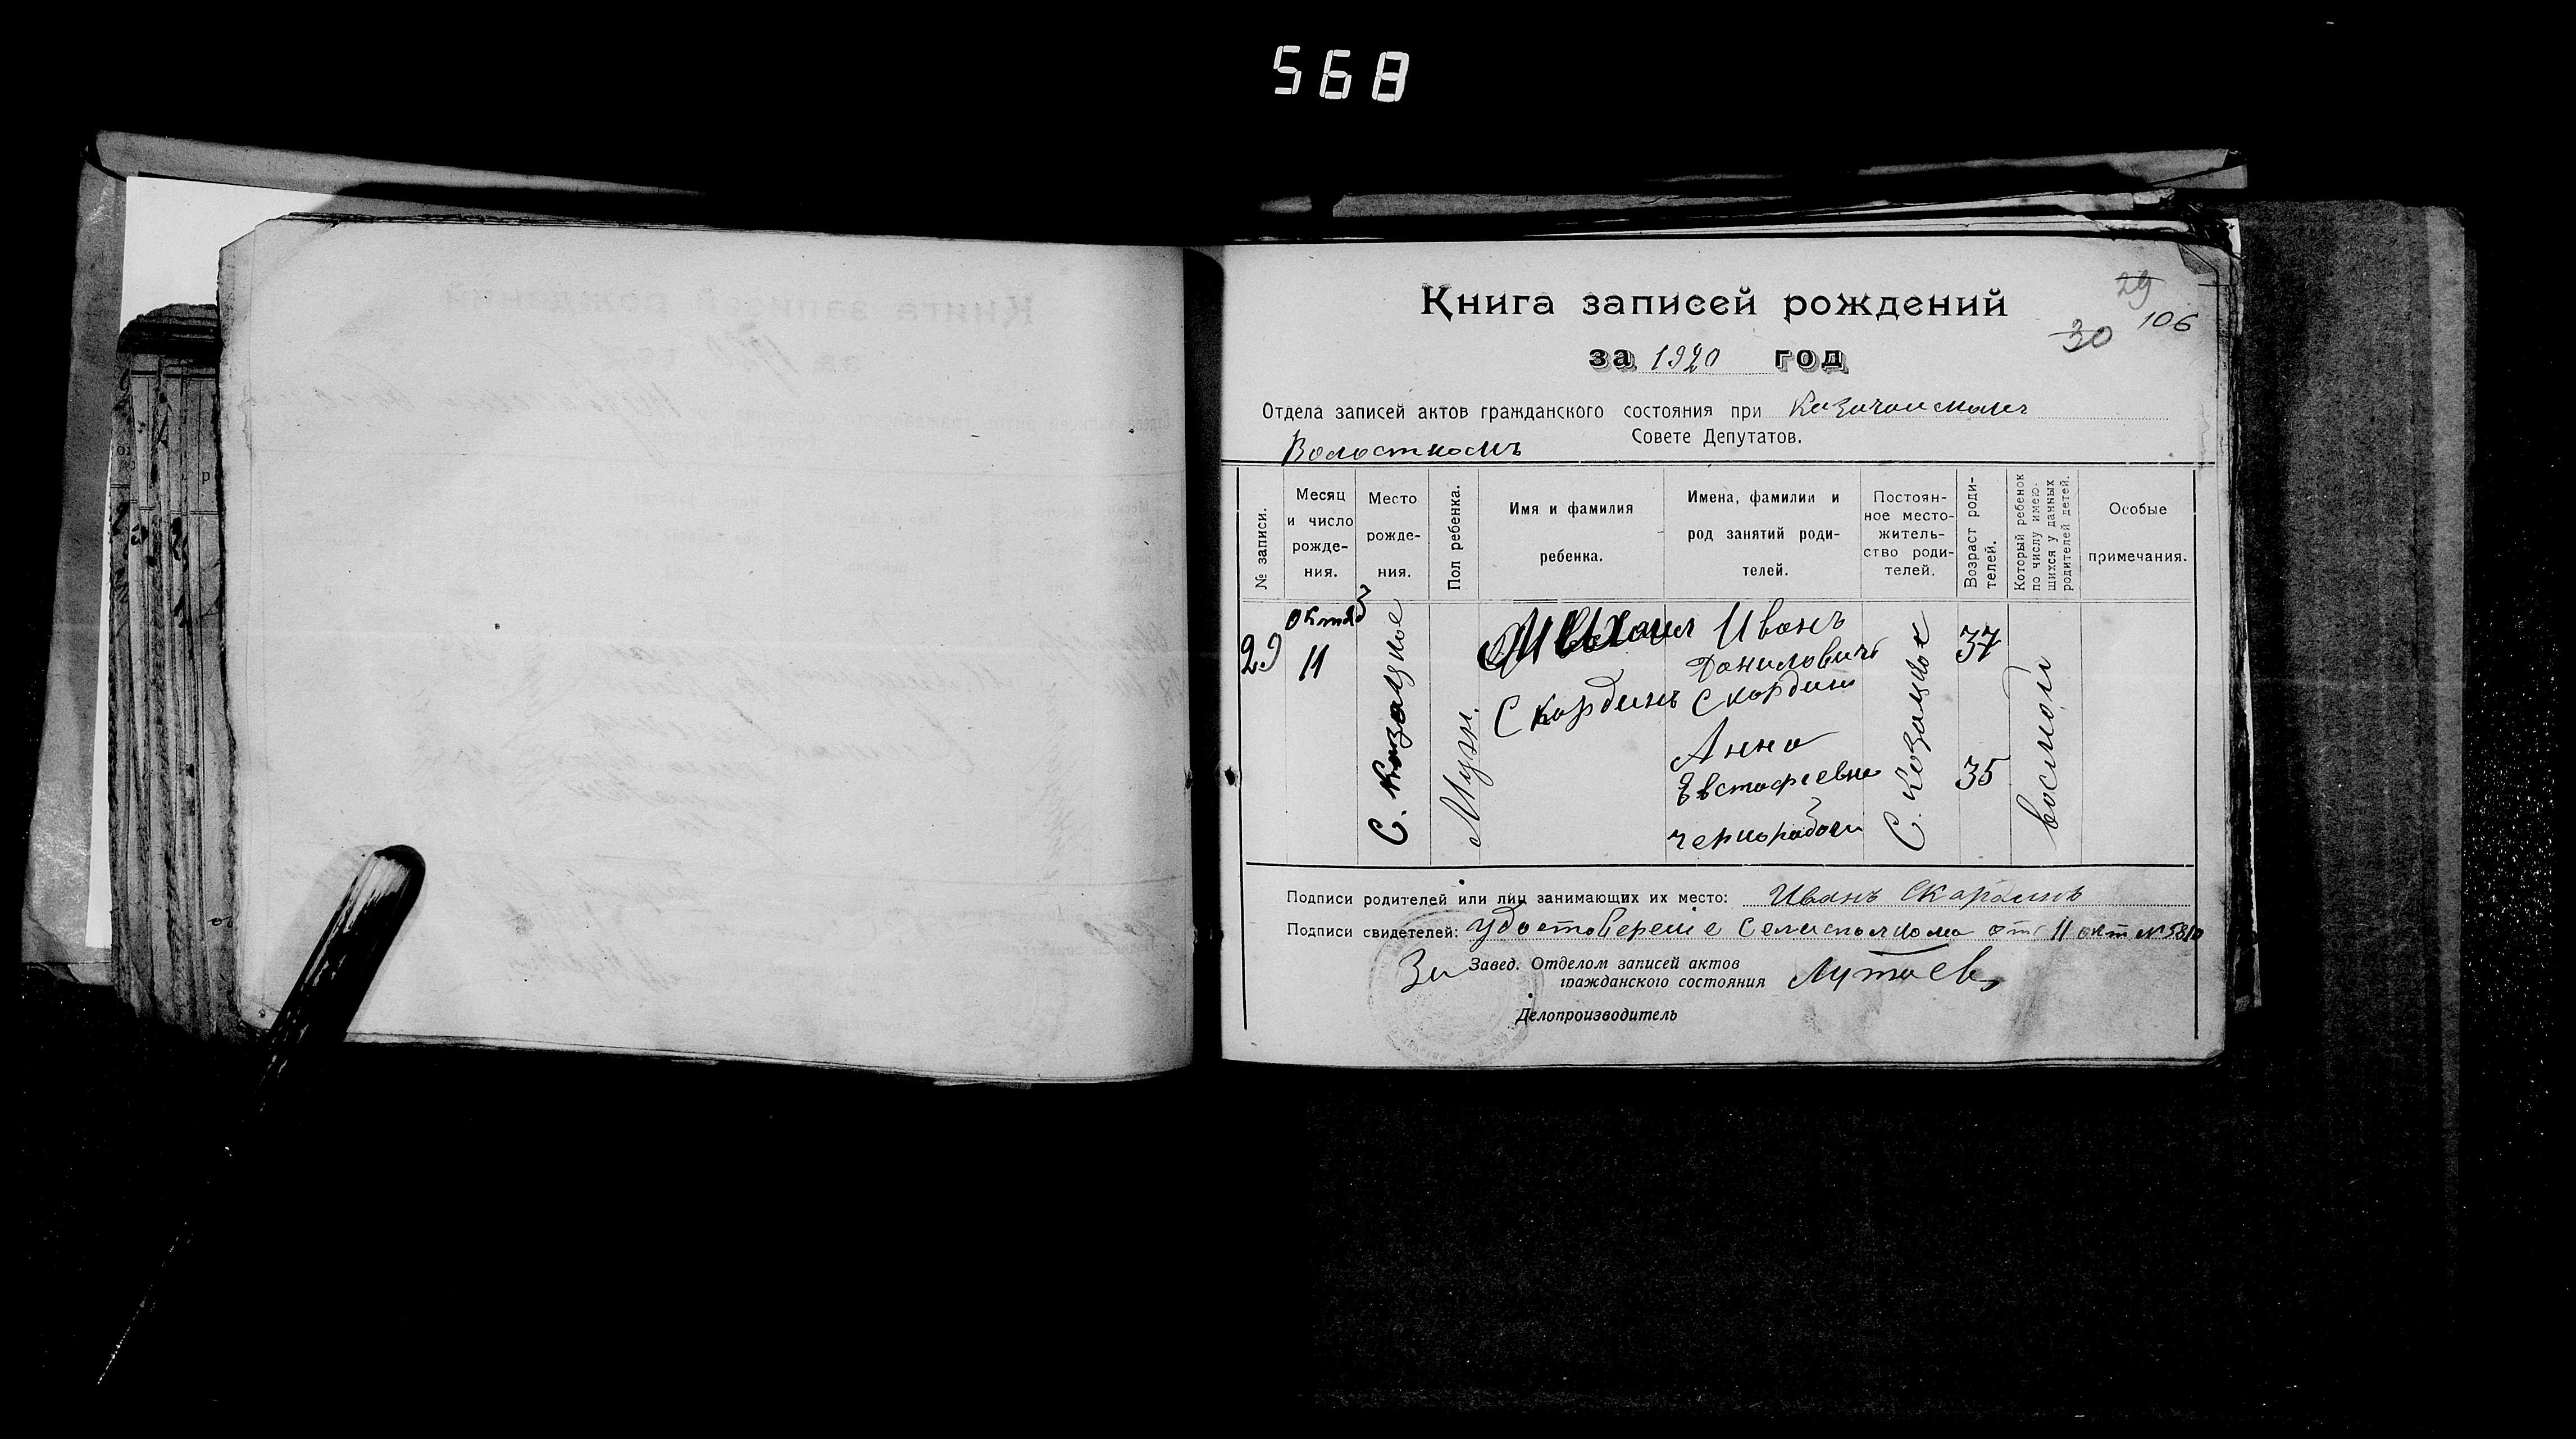 568
Книга записей рождений
29
30
106
за 1920 год
Отдела записей актов гражданского состояния при
Волостномъ Совете Депутатов.
№ записи.
Месяц и число рожде- ния.
Место рожде- ния.
Пол ребенка.
Имя и фамилия ребенка.
Имена, фамилии и род занятий роди- телей.
Постоян- ное место- житель- ство роди- телей.
Возраст роди- телей.
Который ребенок по числу имею- щихся у данных родителей детей.
Особые примечания.
29
11
С.
Муж.
Михаил
Скординъ
Иванъ
Даниловичъ
Скордин
Анна
Евстафиевна
чернорабочи
С.
37
35
восмой
Подписи родителей или лиц занимающих их место: Иванъ Скординъ
Подписи свидетелей: Удостоверение Селисполкома от 11 окт №
За Завед. Отделом записей актов
гражданского состояния
Делопроизводитель